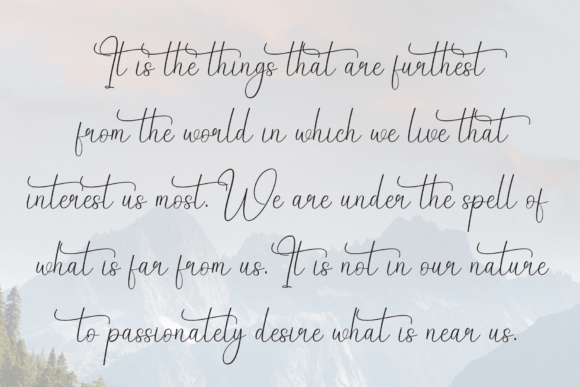 It is the things that are furthest
from the world in which we live that
interest us most. We are under the spell of
what is far from us. It is not in our nature
to passionately desire what is near us.